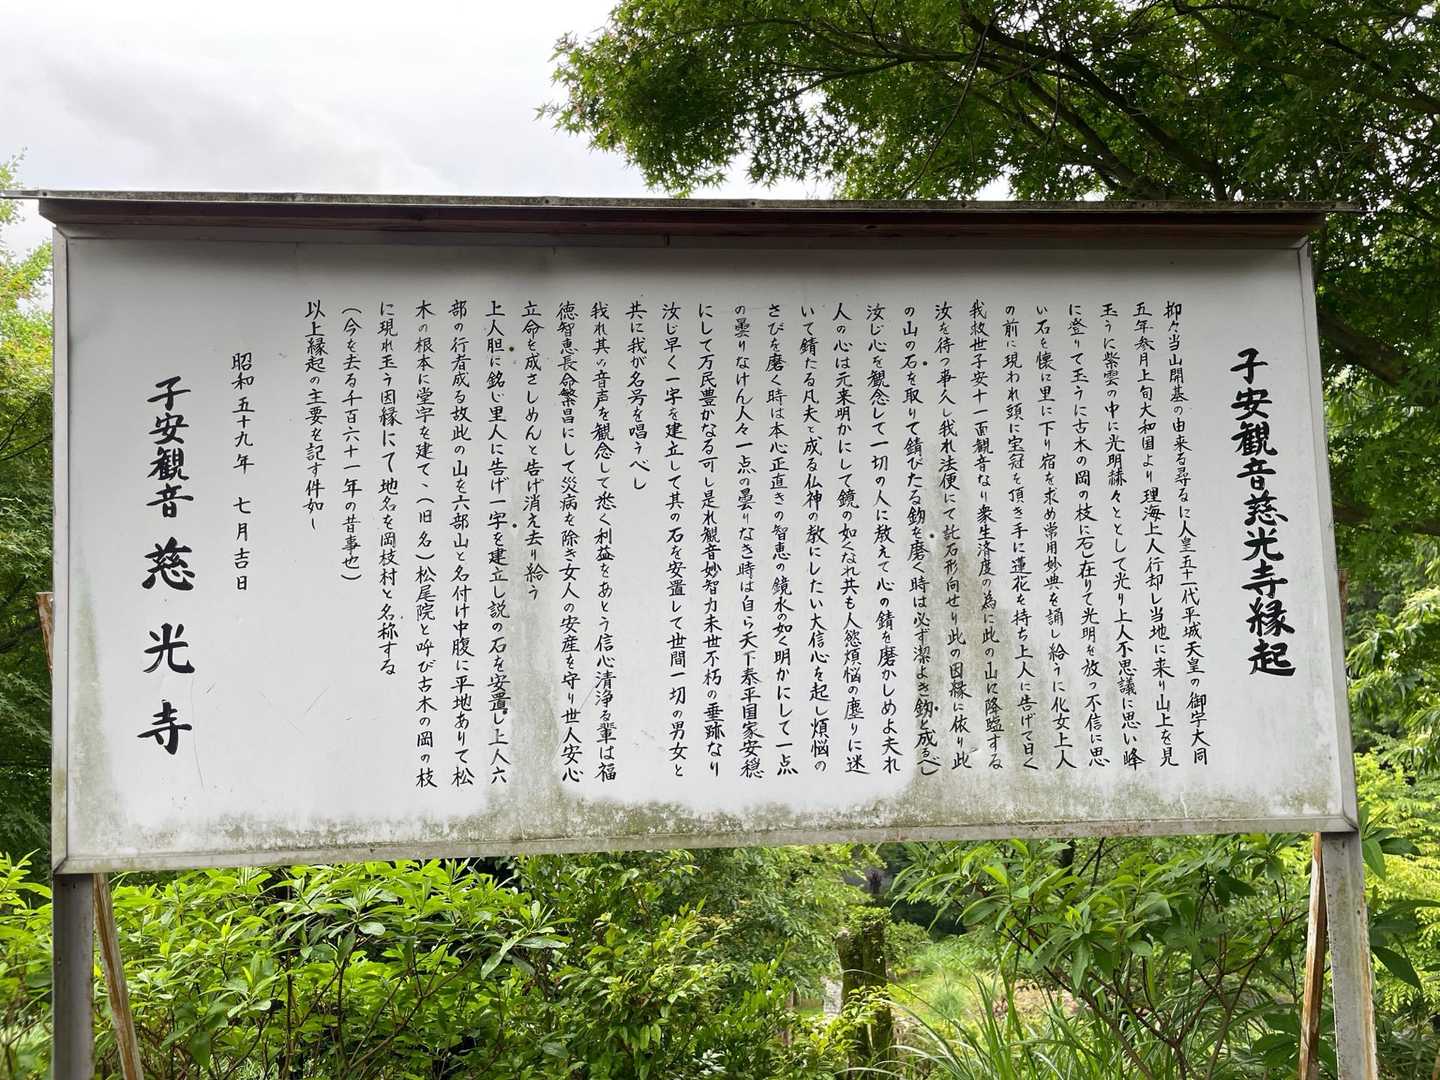 子安観音慈光寺縁起
抑々当山開基の由来を尋るに人皇五十一代平城天皇の御宇大同
五年参月上旬大和国より理海上人行却し当地に来り山上を見
玉うに紫雲の中に光明赫々ととして光り上人不思議に思い峰
に登りて玉うに古木の岡の枝に石在りて光明を放つ不信に思
い石を懐に里に下り宿を求め常用妙典を誦し給うに化女上人
の前に現われ頭に宝冠を頂き手に蓮花を持ち上人に告げて曰く
我救世子安十一面観音なり衆生済度の為に此の山に降臨する
汝を待つ事久し我れ法便にて託石形向せり此の因縁に依り此
の山の石を取りて錆びたる釼を磨く時は必ず潔よき釼と成るべし
汝じ心を観念して一切の人に教えて心の錆を磨かしめよ夫れ
人の心は元来明かにして鏡の如くなれ共も人慾煩悩の塵りに迷
いて錆たる凡夫と成る仏神の教にしたい大信心を起し煩悩の
さびを磨く時は本心正直きの智恵の鏡水の如く明かにして一点
の曇りなけん人々一点の曇りなき時は自ら天下泰平国家安穏
にして万民豊かなる可し是れ観音妙智力末世不朽の垂跡なり
汝じ早く一宇を建立して其の石を安置して世間一切の男女と
共に我が名号を唱うべし
我れ其の音声を観念して悉く利益をあとう信心清浄る輩は福
徳智恵長命繁昌にして災病を除き女人の安産を守り世人安心
立命を成さしめんと告げ消え去り給う
上人胆に銘じ里人に告げ一宇を建立し説の石を安置し上人六
部の行者成る故此の山を六部山と名付け中腹に平地ありて松
木の根本に堂宇を建て、(旧名)松尾院と呼び古木の岡の枝
に現れ玉う因縁にて地名を岡枝村と名称する
(今を去る千百六十一年の昔事也)
以上縁起の主要を記す件如し
昭和五十九年 七月吉日
子安観音 慈光寺